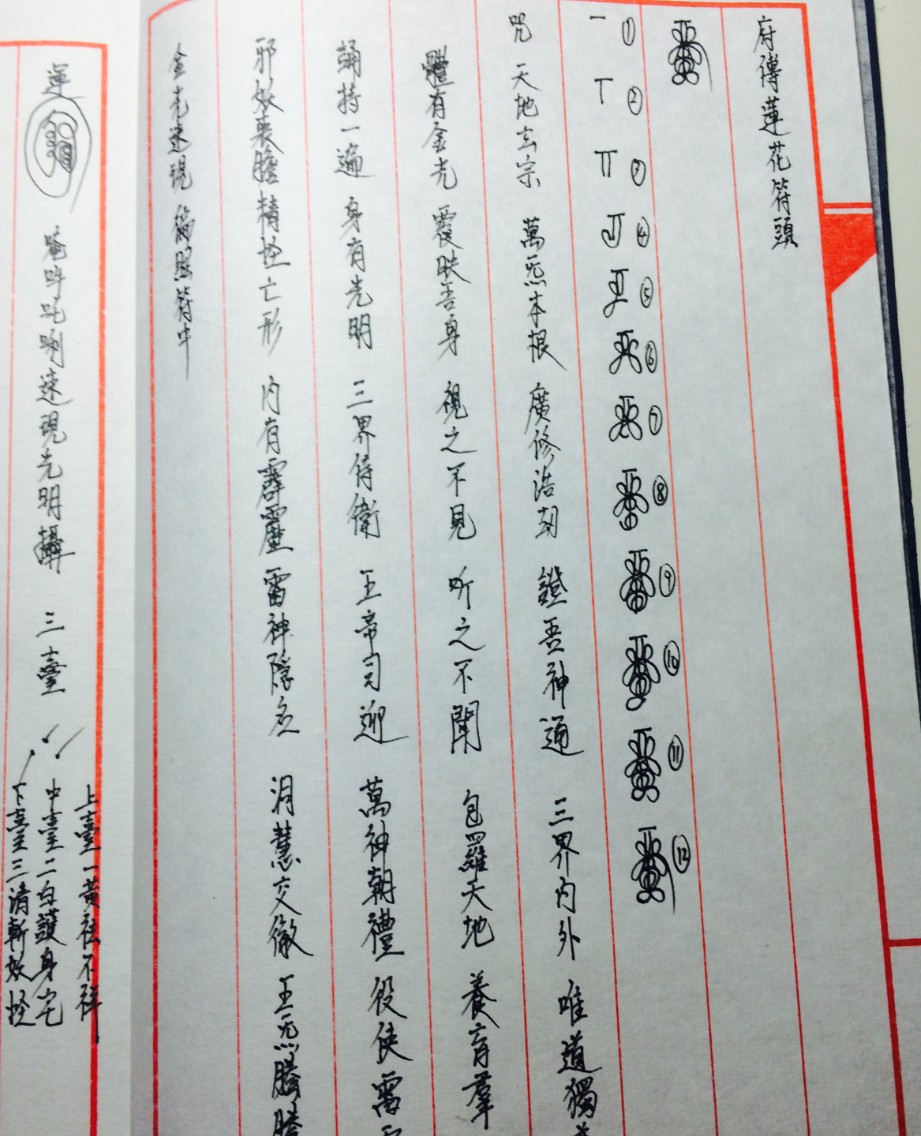 府傳蓮花符頭
① ② ③ ④ ⑤ ⑥ ⑦ ⑧ ⑨ ⑩ ⑪ ⑫
咒 天地玄宗 萬炁本根 廣修浩劫 證吾神通 三界內外 唯道獨
體有金光 覆映吾身 視之不見 听之不聞 包羅天地 養育羣
誦持一遍 身有光明 三界侍衛 五帝司迎 萬神朝禮 役使雷
邪妖喪膽 精怪亡形 內有霹靂 雷神隱名 洞慧交徹 五炁騰騰
金光速現 符中
運
唵吽吒唎速現光明攝 三臺
上臺一黃祛不祥
中臺二白護身宅
下臺三清斬妖怪